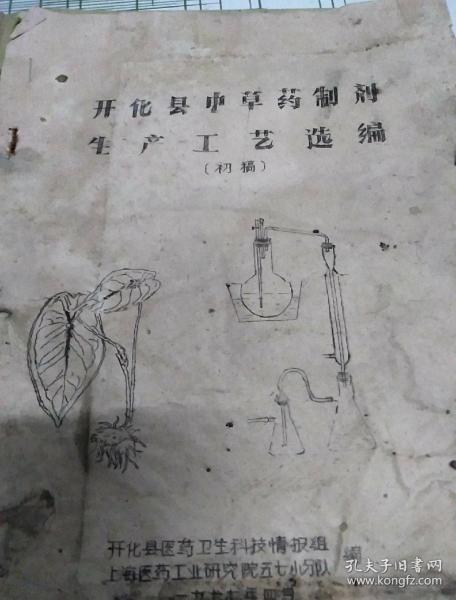 开化县中草药制剂
生产工艺选编
(初稿)
开化县医药卫生科技情报组
上海医药工业研究院五七小分队
编
一九七七年四月
孔夫子旧书网
www.kongfz.com